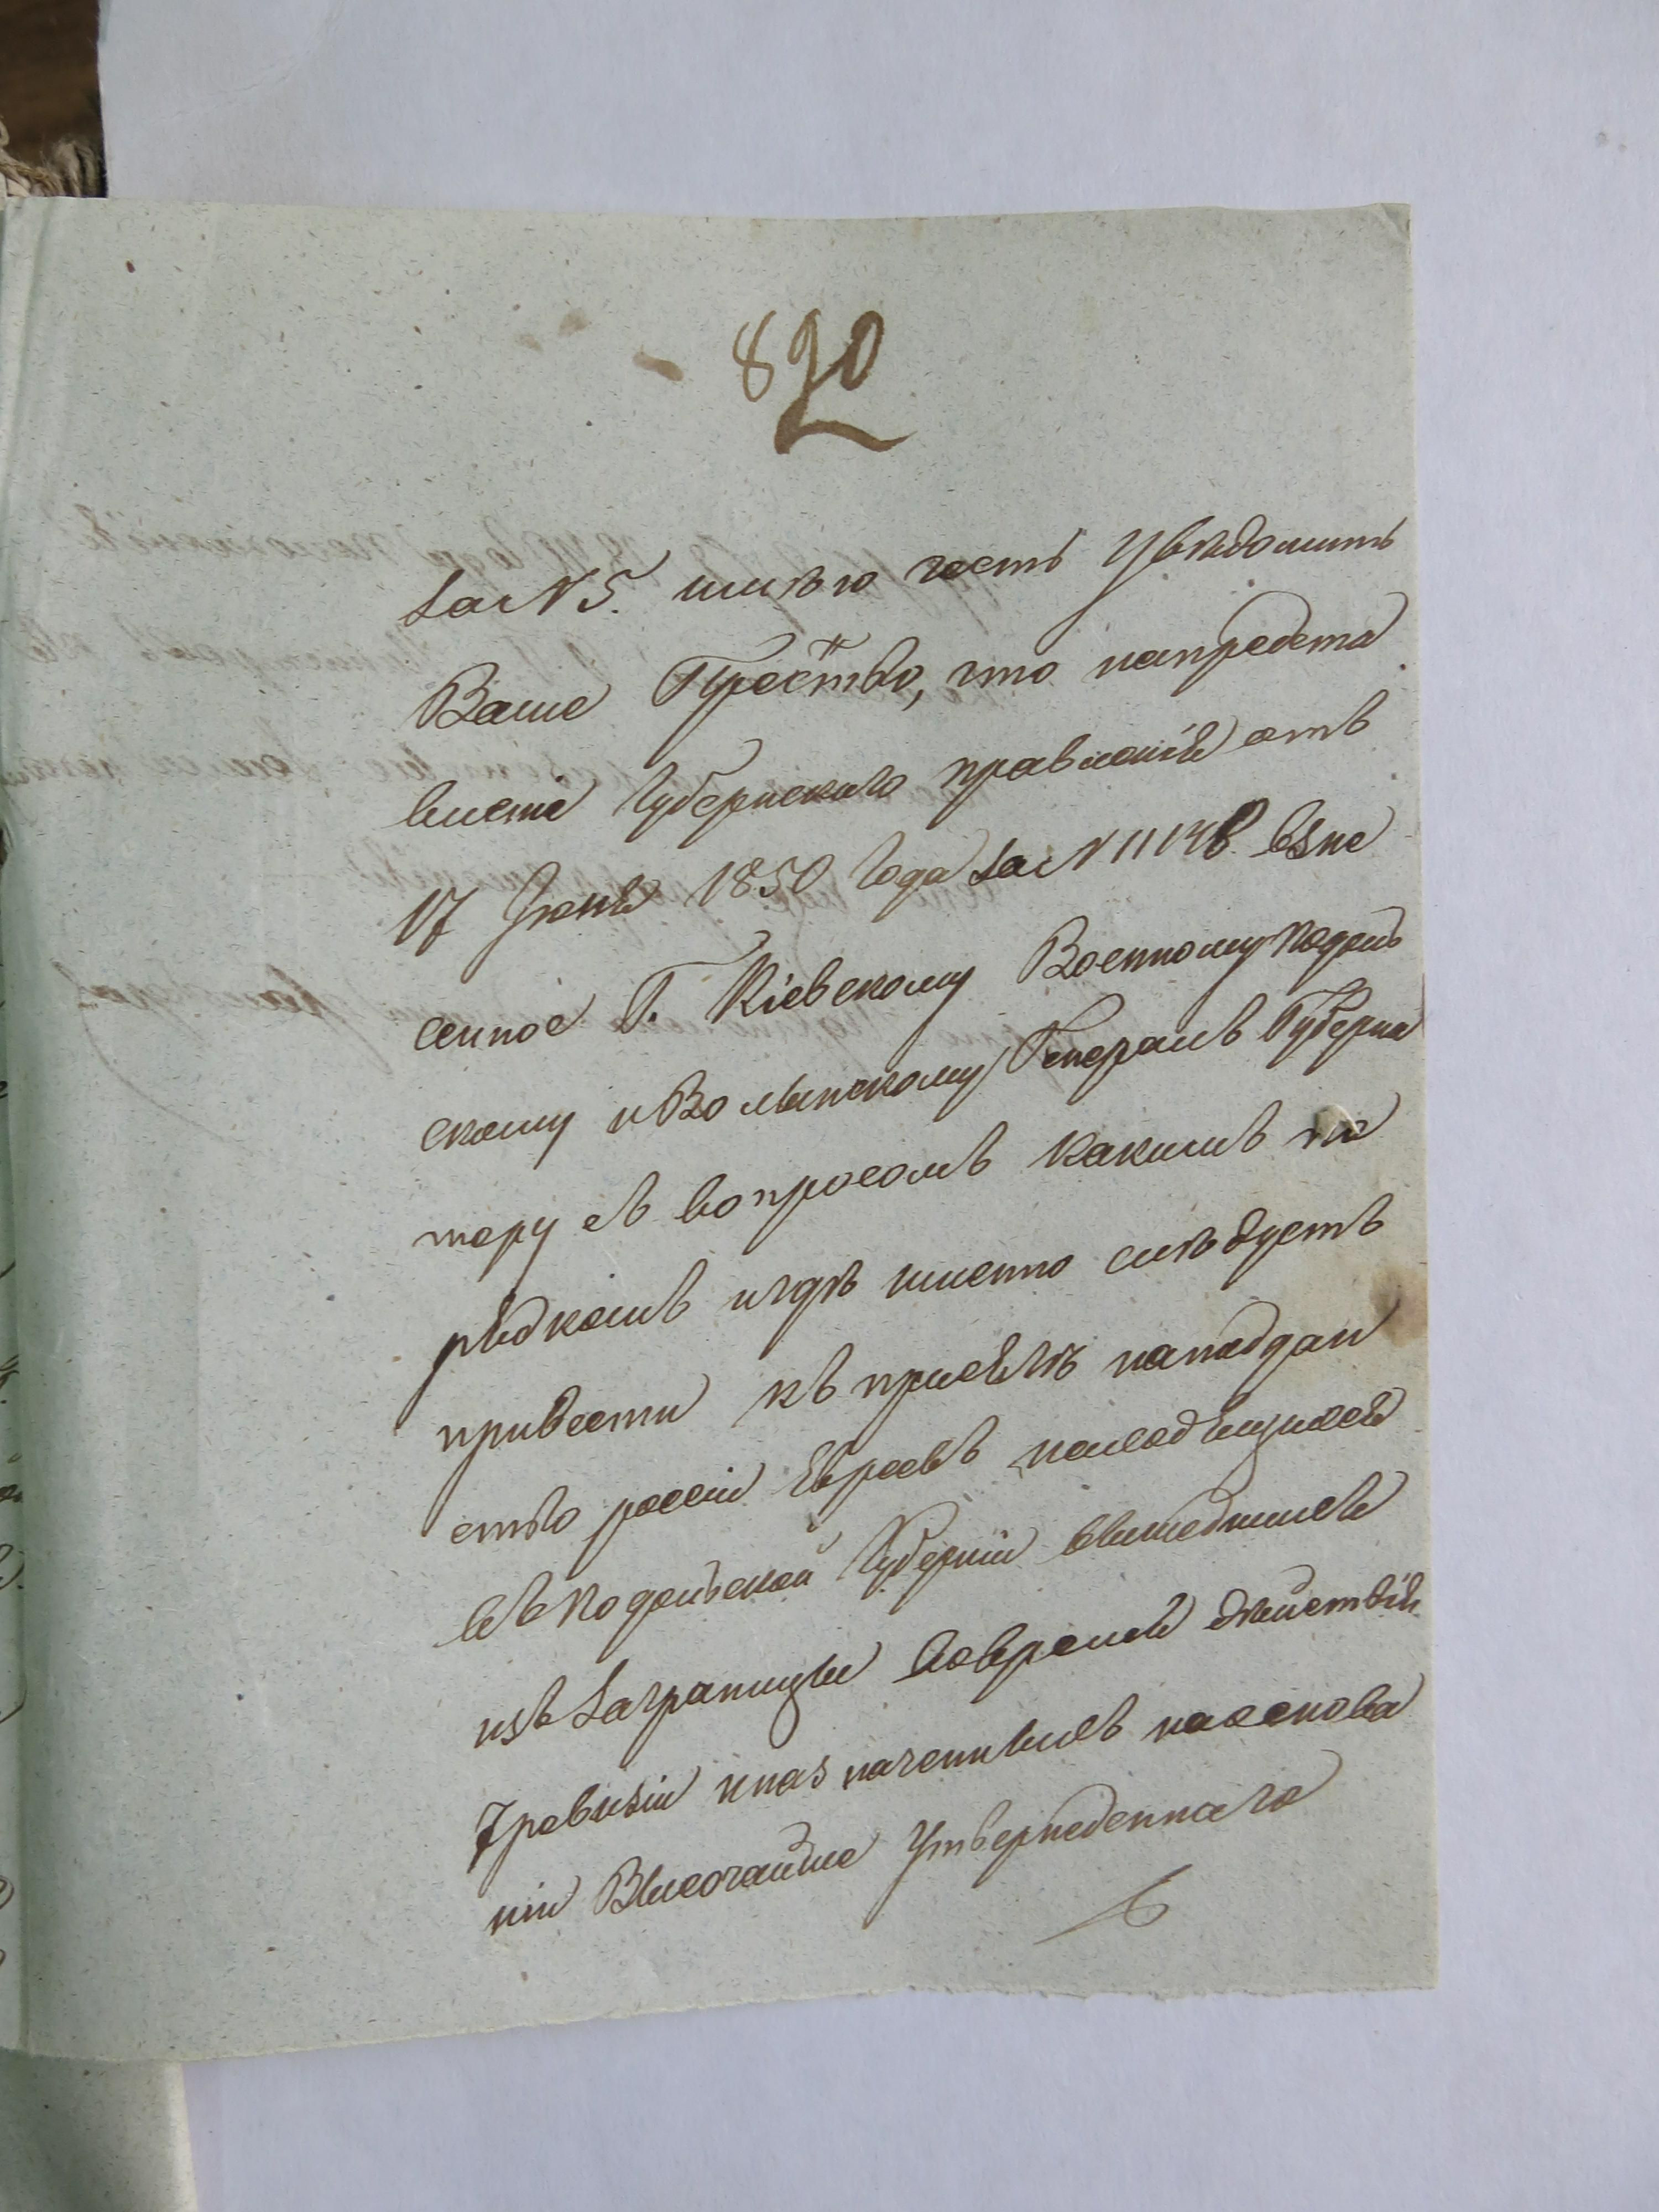 820
за N 5. имѣю честь увѣдомить
Ваше Пре-ство, что напредста
вленіе Губернскаго правленія отъ
17 Іюня 1850 года за N 11148 взне
сенное Г. Кіевскому Военному Подоль
скому и Волынскому Генералъ Губерна
тору съ вопросомъ какимъ по
рядкомъ игдѣ именно слѣдуетъ
привести къ присягѣ наподдан
ство россіи Евреевъ находящихся
въ Подольской Губерніи вышедшихъ
изъ Заграницы довремя дѣйствія
7 ревизіи иназначенныхъ наоснова
ніи Высочайше Утвержденнаго